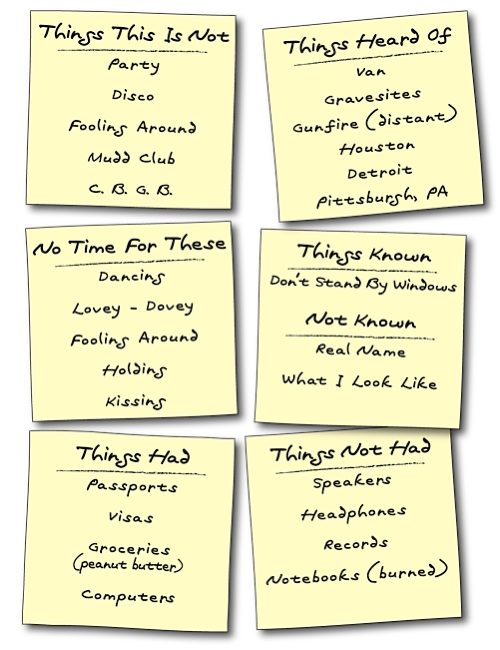 Things This Is Not
Party
Disco
Fooling Around
Mudd Club
C. B. G. B.
Things Heard Of
Van
Gravesites
Gunfire (distant)
Houston
Detroit
Pittsburgh, PA
No Time For These
Dancing
Lovey - Dovey
Fooling Around
Holding
Kissing
Things Known
Don't Stand By Windows
Not Known
Real Name
What I Look Like
Things Had
Passports
Visas
Groceries
(peanut butter)
Computers
Things Not Had
Speakers
Headphones
Records
Notebooks (burned)